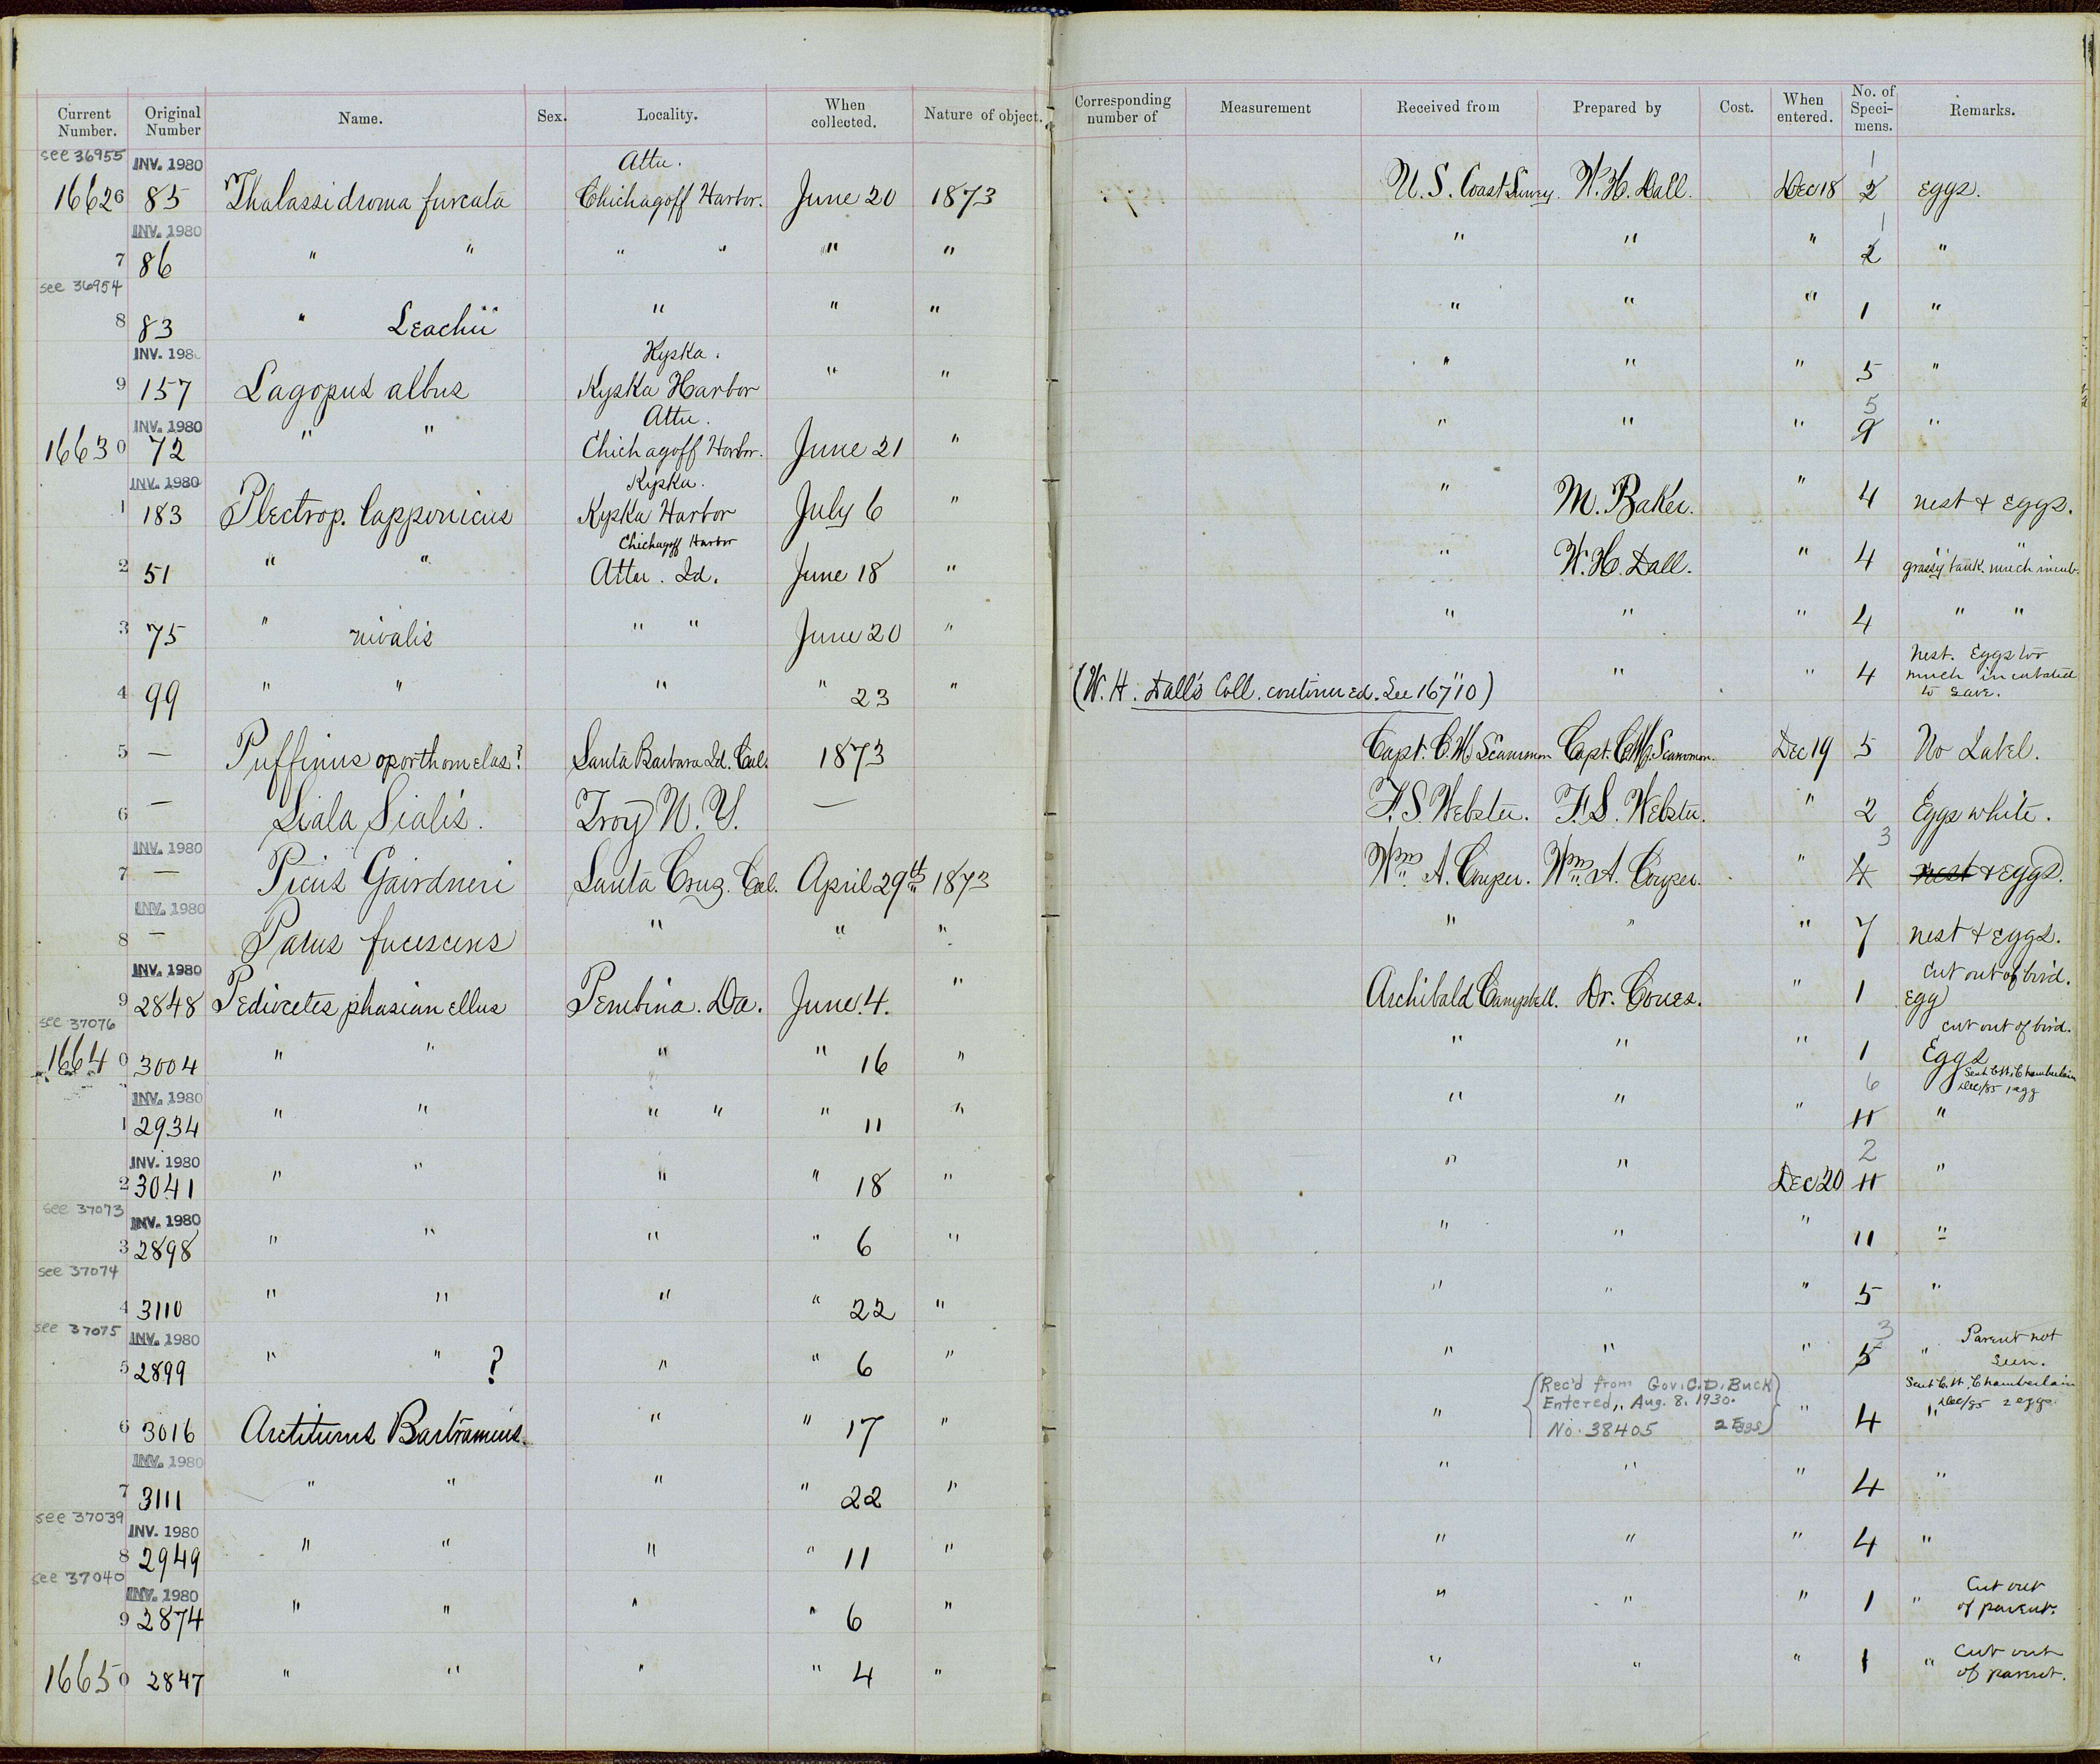 Current Number. Original Number Name. Sex. Locality. When collected. Nature of object. Corresponding number of Measurement Received from Prepared by Cost. When entered. No. of Specimens. Remarks.
see 36955 INV. 1980 Attu. 1
16626 85 Thalassidroma furcata Chichagoff Harbor. June 20 1873 U.S. Coast Survy. W.H. Dall. Dec 18 2 Eggs.
INV. 1980 1
7 86 " " " " " " " " " 2 "
see 36954
8 83 " Leachii " " " " " " 1 "
INV. 1980 Kyska.
9 157 Lagopus albus Kyska Harbor " " " " " 5 "
INV. 1980 Attu. 5
16630 72 " " Chichagoff Harbor. June 21 " " " " 9 "
INV. 1980 Kyska.
1 183 Plectrop. lapponicus Kyska Harbor July 6 " " M. Baker. " 4 nest & Eggs.
Chichagoff Harbor
2 51 " " Attu. Id. June 18 " " W.H. Dall. " 4 " "
grassy bank. much incub.
3 75 " nivalis " " June 20 " " " " 4 " "
4 99 " " " " 23 " " " " 4 Nest. Eggs too
much incubated
to save.
(W.H. Dall's Coll. continued. See 16710)
5 — Puffinus oporthomelas? Santa Barbara Id. Cal. 1873 Capt. C.M. Scammon Capt. C.M. Scammon. Dec 19 5 No Label.
6 — Siala Sialis. Troy N.Y. — F.S. Webster. F.S. Webster. " 2 Eggs white.
INV. 1980 3
7 — Picus Gairdneri Santa Cruz. Cal. April 29th 1873 Wm. A. Cooper. Wm. A. Cooper. " 4 nest & Eggs.
INV. 1980
8 — Parus fucescens " " " " " " 7 nest & Eggs.
INV. 1980 Cut out of bird.
9 2848 Pediocetes phasianellus Pembina. Da. June. 4. " Archibald Campbell. Dr. Coues. " 1 Egg
see 37076 cut out of bird.
16640 3004 " " " " 16 " " " " 1 Eggs
Sent C.H. Chamberlain
Dec/85 1 egg
INV. 1980 6
1 2934 " " " " " 11 " " " " 11 "
INV. 1980 2
2 3041 " " " " 18 " " " Dec 20 11 "
see 37073 INV. 1980
3 2898 " " " " 6 " " " " 11 "
see 37074
4 3110 " " " " 22 " " " " 5 "
see 37075 INV. 1980 3
5 2899 " " ? " " 6 " " " " 5 " Parent not
seen.
{Rec'd from Gov. C.D. Buck
Entered, Aug. 8, 1930.
No. 38405 2 Eggs}
Sent C.H. Chamberlain
Dec/85 2 eggs.
6 3016 Actiturus Bartramius. " " 17 " " " 4 "
INV. 1980
7 3111 " " " " 22 " " " " 4 "
see 37039 INV. 1980
8 2949 " " " " 11 " " " " 4 "
see 37040 INV. 1980
9 2874 " " " " 6 " " " " 1 " Cut out
of parent.
16650 2847 " " " " 4 " " " " 1 " Cut out
of parent.